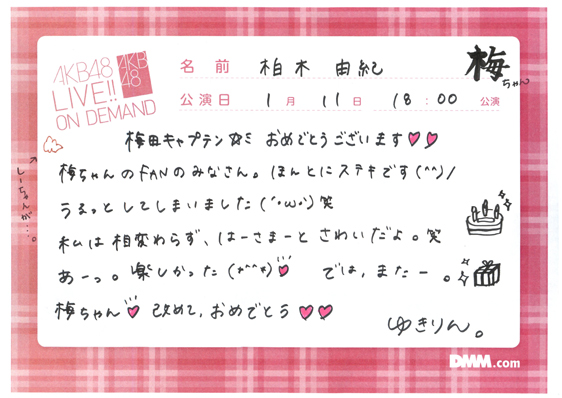 AKB48
LIVE!!
ON DEMAND
AKB
48
名前 柏木 由紀
梅
ちゃん
公演日 1月 11日 18:00 公演
梅田キャプテン☆ミ おめでとうございます♥♥
梅ちゃんのFANのみなさん。ほんとにステキです(^^)/
うるっとしてしまいました(´・ω・`)笑
私は相変わらず、はーさまーとさわいだよ。笑
あーっ。楽しかった(*^^*)♥ では、またー。
梅ちゃん♥ 改めて、おめでとう♥♥
ゆきりん。
しーちゃんが…。
DMM.com